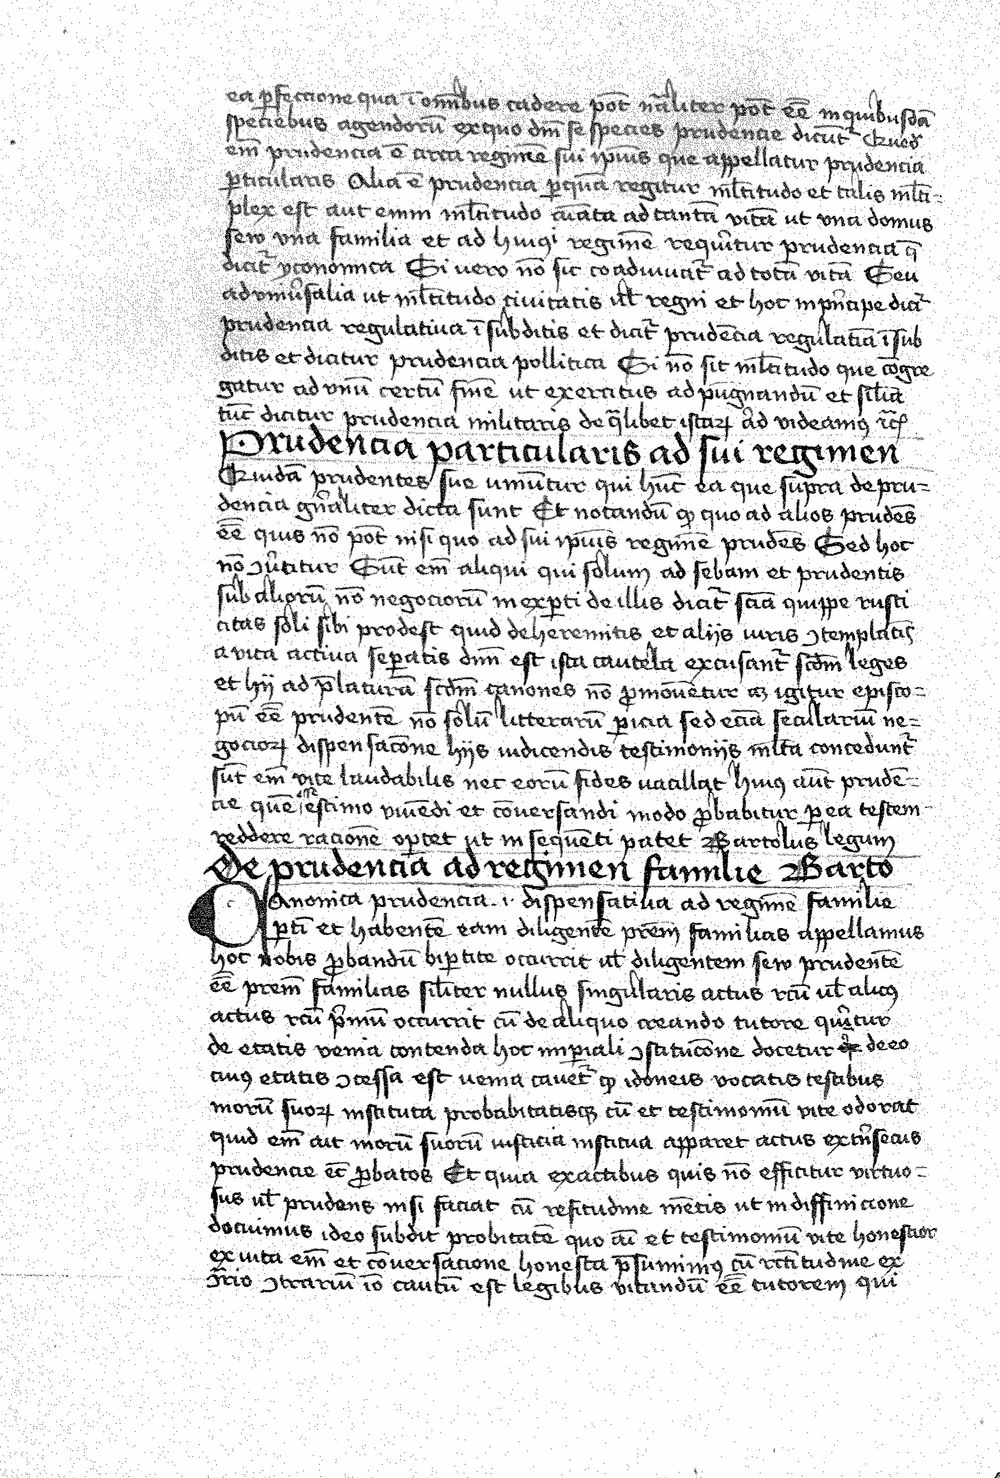 ea ꝑfeccione qua ī om̄ibus cadere pōt nāliter pōt eē̄ in quibusdā
speciebus agendorū ex quo dn̄t se species prudencie dicūt᷑
em̄ prudencia ē circa regimē sui ipius que appellatur prudencia
ꝑticularis Alia ē prudencia ꝑ quā regitur ml̄titudo et talis ml̄ti=
plex est aut enim ml̄titudo ad tantā vitā ut vna domus
sew vna familia et ad hui9i regimē requiritur prudencia q̄
dicit᷑ yconomica Si vero nō sic coadiuuāt᷑ ad totā vitā Seu
ad vniu͛salia ut ml̄titudo ciuitatis ul̄ regni et hoc in pͥncipe dicit᷑
prudencia regulatiua ī subditis et dicit᷑ prudēcia regulatiā ī sub
ditis et dicitur prudencia pollitica Si nō sit ml̄titudo que cōgre
gatur ad vnū certū finē ut exercitus ad pugnandū et sil̄ia
tūc dicitur prudencia militaris de ql̄ibet istaꝝ ad videam9
Prudencia particularis ad sui regimen
Quidā prudentes sue qui hn̄t ea que supra de pru=
dencia gn̄aliter dicta sunt Et notandū ꝙ quo ad alios prudēs
eē̄ quis nō pōt nisi quo ad sui ipius regimē prudēs Sed hoc
nō ꝯu͛titur Sūt em̄ aliqui qui solum ad se et prudentis
sub aliorū nō negociorū inexꝑti de illis dicit᷑ scīa quippe rusti
citas soli sibi prodest quid de heremitis et alijs iuris ꝯtemplatis
a vita actiua seꝑatis dn̄i est ista cautela excusant᷑ scdm̄ leges
et hij ad p̄laturā scdm̄ canones nō ꝓmouētur igitur episco=
pū eē̄ prudentē nō solū litterarū ꝑicia sed eciā seculariū ne=
gocioꝝ dispensacōne hijs iudicendis testimonijs ml̄ta concedunt᷑
sūt em̄ vite laudabilis nec eorū fides vacillat hui9 aūt prudē=
cie quē estimo viuendi et cōuersandi modo ꝓbabitur ꝑ ea testem
reddere racionē oꝑtet ut in sequēti patet Bartolus legum
De prudencia ad regimen familie Barto
Canonica prudencia .i. dispensatiua ad regimē familie
ꝑti et habentē eam diligentē prēm familias appellamus
hoc nobis ꝓbandū biꝑtite occurrit ul̄ diligentem sew prudentē
eē̄ prem̄ familias sil̄iter nullus singularis actus rcū ul̄ alic9
actus rcū pͥmū occurrit cū de aliquo creando tutore querit᷑ur
de etatis venia contenda hoc imꝑiali ꝯstitucōne docetur de eo
cui9 etatis ꝯcessa est venia cauet᷑ ꝙ idoneis vocatis testibus
morū suoꝝ instituta probabitatisqꝫ cū et testimoniū vite odorat
quid em̄ ait morū suorū iusticia institua apparet actus extn̄secus
prudencie ec̄ ꝓbatos Et quia ex actibus quis nō efficitur virtuo=
sus ul̄ prudens nisi faciat cū restitudine mētis ut in diffinicione
docuimus ideo subdit probitatē quo cū et testimoniū vite honestior
ex vita em̄ et cōuersacione honesta p̄sumim9 cū rcti̅tudine ex
ꝯtrariū iō cautū est legibus vitandū eē̄ tutorem qui